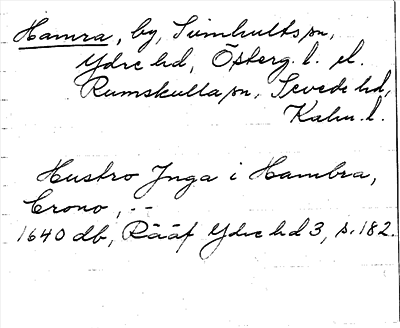 Hamra, by, Sunhults sn,
Ydre hd, Österg. l. el.
Rumskulla sn, Sevede hd,
Kalm. l.
Hustro Jnga i Hambra,
Crono, --
1640 db, Rääf Ydre hd 3, s. 182.